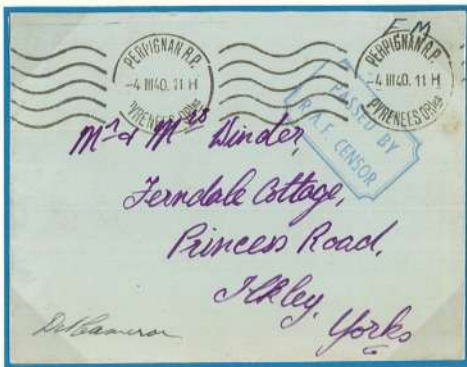 F M
PERPIGNAN R.P.
-4 III 40. 11 H
PYRENEES ORIles
PERPIGNAN R.P.
-4 III 40. 11 H
PYRENEES ORIles
PASSED BY
R.A.F. CENSOR
Mr & Mrs Dinder,
Ferndale Cottage,
Princess Road,
Ilkley,
Yorks
Cameron